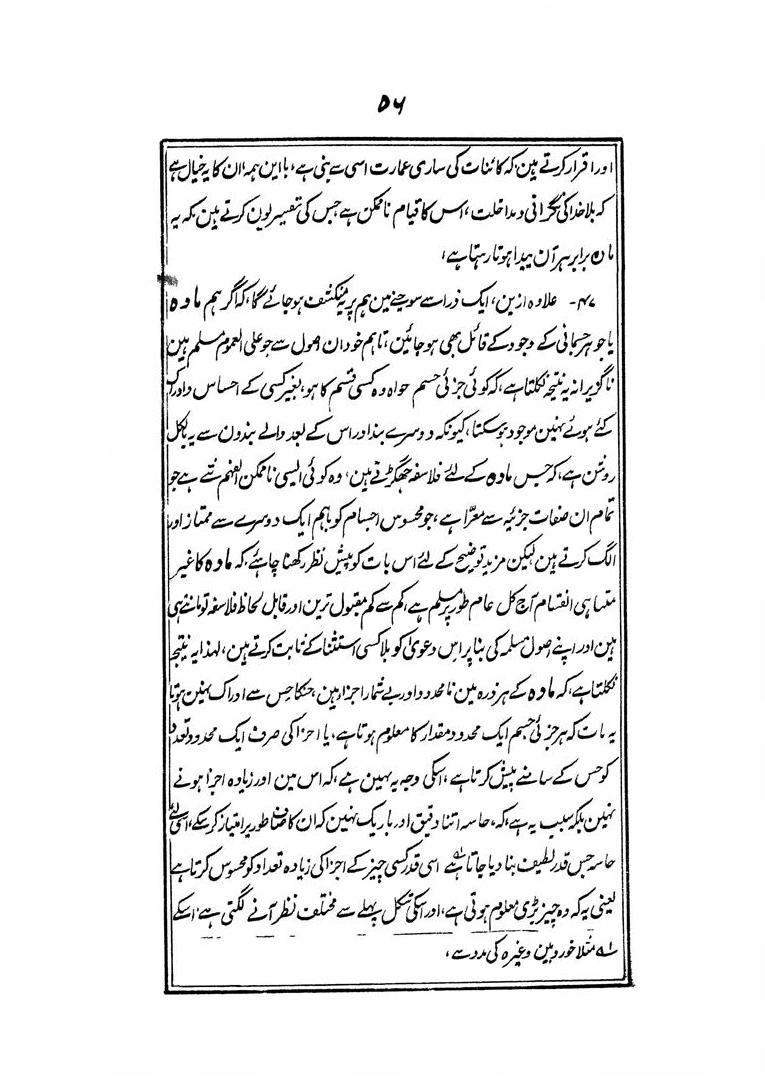 ۵۶
اور اقرار کرتے ہین کہ کائنات کی ساری عمارت اسی سے بنی ہے، با این ہمہ ان کا یہ خیال ہے
کہ بلا خدا کی نگرانی و مداخلت، اس کا قیام ناممکن ہے جس کی تفسیر یون کرتے ہین، کہ یہ
مادہ برابر ہر آن پیدا ہوتا رہتا ہے،
۴۷- علاوہ ازین، ایک ذرا سے سوچنے مین ہم پر یہ منکشف ہو جائے گا، کہ اگر ہم مادہ
یا جوہر جسمانی کے وجود کے قائل بھی ہو جائین، تاہم خود ان اصول سے جو علی العموم مسلم ہین
ناگزیرانہ یہ نتیجہ نکلتا ہے، کہ کوئی جزئی جسم خواہ وہ کسی قسم کا ہو، بغیر کسی کے احساس و ادراک
کئے ہوئے نہین موجود ہو سکتا، کیونکہ دوسرے بند اور اس کے بعد والے بندون سے یہ بالکل
روشن ہے، کہ جس مادہ کے لئے فلاسفہ جھگڑتے ہین، وہ کوئی ایسی ناممکن الفہم شے ہے جو
تمام ان صفات جزئیہ سے معرّا ہے، جو محسوس اجسام کو باہم ایک دوسرے سے ممتاز اور
الگ کرتے ہین لیکن مزید توضیح کے لئے اس بات کو پیش نظر رکھنا چاہئے، کہ مادہ کا غیر
متناہی انقسام آج کل عام طور پر مسلم ہے، کم سے کم مقبول ترین اور قابل لحاظ فلاسفہ تو مانتے ہی
ہین اور اپنے اصول مسلمہ کی بنا پر اس دعویٰ کو بلا کسی استثنا کے ثابت کرتے ہین، لہذا یہ نتیجہ
نکلتا ہے، کہ مادہ کے ہر ذرہ مین نامحدود اور بے شمار اجزا ہین جنکا حس سے ادراک نہین ہوتا
یہ بات کہ ہر جزئی جسم ایک محدود مقدار کا معلوم ہوتا ہے، یا اجزا کی صرف ایک محدود تعداد
کو حس کے سامنے پیش کرتا ہے، اسکی وجہ یہ نہین ہے، کہ اس مین اور زیادہ اجزا ہوتے
نہین بلکہ سبب یہ ہے، کہ، حاسہ اتنا دقیق اور باریک نہین کہ ان کا صاف طور پر امتیاز کر سکے، اسی لئے
حاسہ جس قدر لطیف بنا دیا جاتا ہے۱ اسی قدر کسی چیز کے اجزا کی زیادہ تعداد کو محسوس کرتا ہے
یعنی یہ کہ وہ چیز بڑی معلوم ہوتی ہے، اور اسکی شکل پہلے سے مختلف نظر آنے لگتی ہے، اسکے
۱ مثلا خوردبین وغیرہ کی مدد سے،